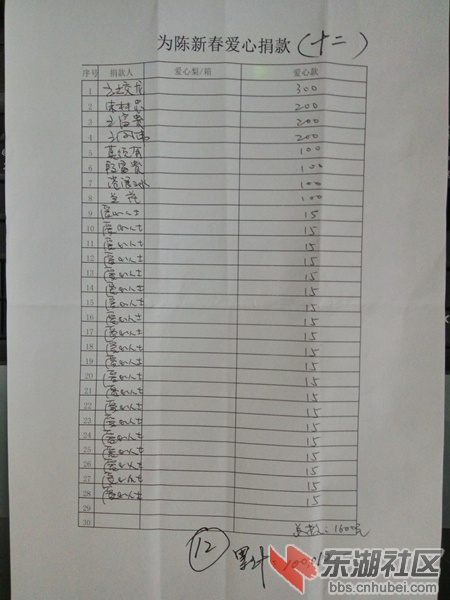 为陈新春爱心捐款(十二)
序号 捐款人 爱心梨/箱 爱心款
1 300
2 200
3 200
4 200
5 100
6 100
7 100
8 100
9 爱心人士 15
10 爱心人士 15
11 爱心人士 15
12 爱心人士 15
13 爱心人士 15
14 爱心人士 15
15 爱心人士 15
16 爱心人士 15
17 爱心人士 15
18 爱心人士 15
19 爱心人士 15
20 爱心人士 15
21 爱心人士 15
22 爱心人士 15
23 爱心人士 15
24 爱心人士 15
25 爱心人士 15
26 爱心人士 15
27 爱心人士 15
28 爱心人士 15
29
30 1600元
12 累计:
东湖社区
bbs.cnhubei.com